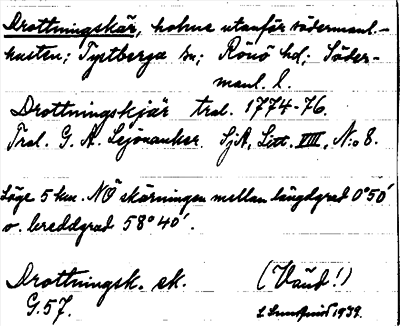 Drottningskär, holme utanför södermanl.-
kusten; Tystberga sn; Rönö hd; Söder-
manl. l.
Drottningskjär trol. 1774-76.
Trol. G. A. Lejonanker SjA, Litt. VIII, N:o 8.
Läge 5 km. NÖ skärningen mellan längdgrad 0°50′
o. breddgrad 58°40′.
Drottningsk. sk. (Vänd!)
G.57. 1939.